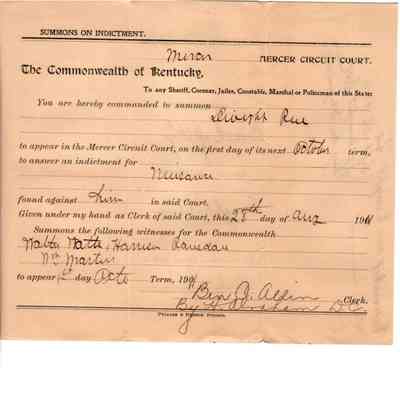 SUMMONS ON INDICTMENT.
Mercer MERCER CIRCUIT COURT.
The Commonwealth of Kentucky,
To any Sheriff, Coroner, Jailer, Constable, Marshal or Policeman of this State:
You are hereby commanded to summon
Dwight Rue
to appear in the Mercer Circuit Court, on the first day of its next October term,
to answer an indictment for
Nuisance
found against him in said Court.
Given under my hand as Clerk of said Court, this 28th day of Aug 190
Summons the following witnesses for the Commonwealth
Walter Watts, Harrison Ransdall
Wm Martin
to appear 1st day Octo Term, 190
Ben J. Allin Clerk.
By D.C.